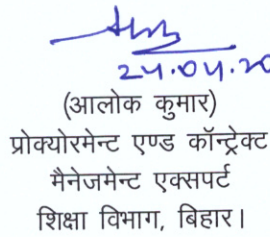 24.04.20
(आलोक कुमार)
प्रोक्योरमेन्ट एण्ड कॉन्ट्रेक्ट
मैनेजमेन्ट एक्सपर्ट
शिक्षा विभाग, बिहार।